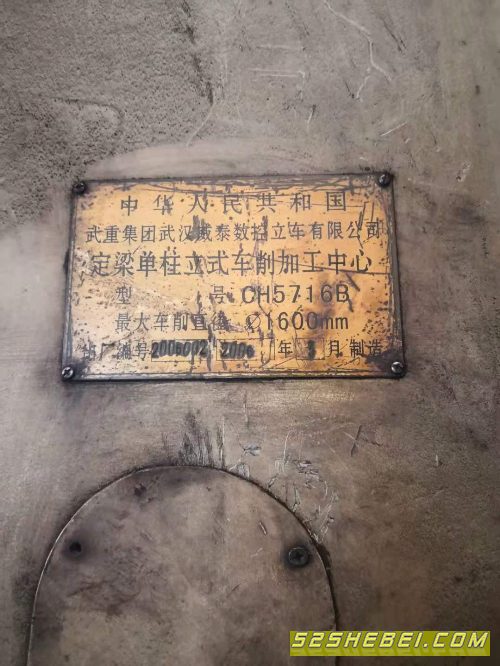 中华人民共和国
武重集团武汉威泰数控立车有限公司
定梁单柱立式车削加工中心
型 号 CH5716B
最大车削直径 Ø1600mm
出厂编号2006002 2006 年 3 月制造
52SHEBEI.COM